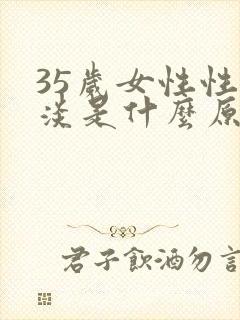 35歲女性性
淡是什麼原
君子飲酒勿言